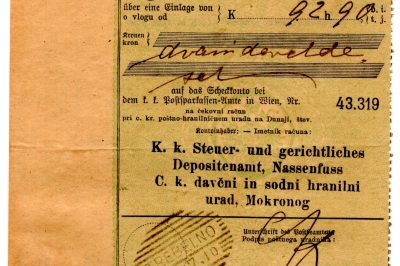 über eine Einlage von
o vlogu od
K 92 h 90 d. i. t. j.
Kronen
kron
dvaindevetde-
set
auf das Scheckkonto bei
dem k. k. Postsparkassen-Amte in Wien, Nr. 43.319
na čekovni račun
pri c. kr. poštno-hranilničnem uradu na Dunaji, štev.
Kontoinhaber: — Imetnik računa:
K. k. Steuer- und gerichtliches
Depositenamt, Nassenfuss
C. k. davčni in sodni hranilni
urad, Mokronog
Unterschrift des Postbeamten:
Podpis poštnega uradnika: